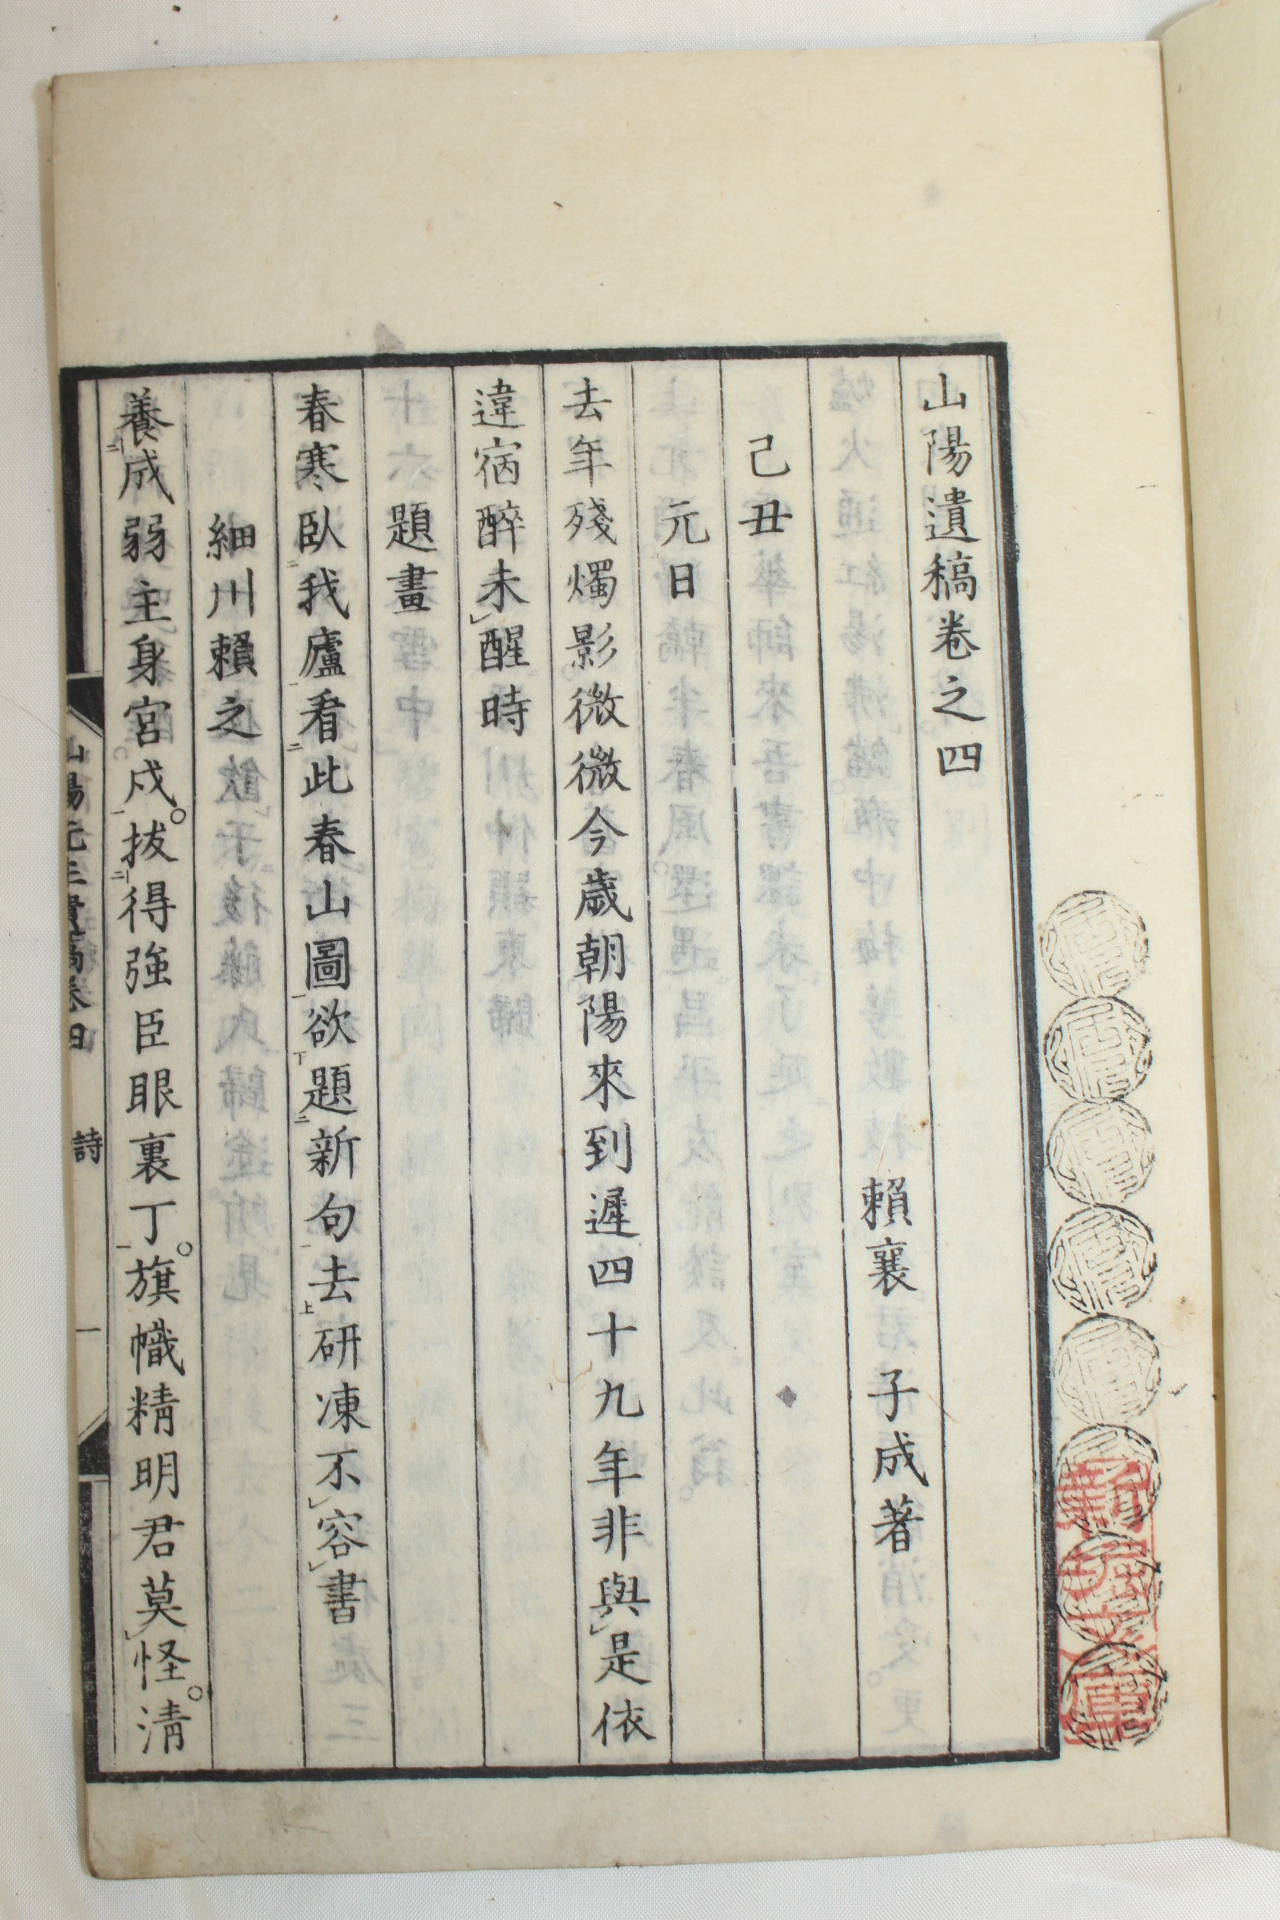 山陽遺稿卷之四
賴襄 子成著
己丑
元日
去年殘燭影微微今歲朝陽來到遲四十九年非與是依
違宿醉未醒時
題畫
春寒臥我廬看此春山圖欲題新句去研凍不容書
細川賴之
養成弱主身宮戍拔得強臣眼裏丁旗幟精明君莫怪清
詩
一